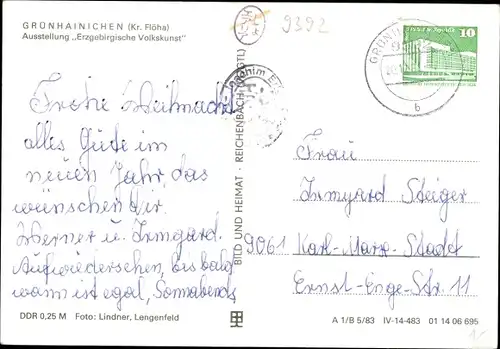 GRÜNHAINICHEN (Kr. Flöha)
Ausstellung „Erzgebirgische Volkskunst"
9392
10
GRÜNH
b
Frohe Weihnacht
alles Gute im
neuen Jahr, das
wünschen Dir
Werner u. Irmgard.
Aufwiedersehen, bis bald
wann ist egal, Sonnabends
BILD UND HEIMAT · REICHENBACH (VOGTL)
Frau
Irmgard Steiger
9061 Karl-Marx-Stadt
Ernst-Enge-Str. 11
DDR 0,25 M Foto: Lindner, Lengenfeld
A 1/B 5/83 IV-14-483 01 14 06 695